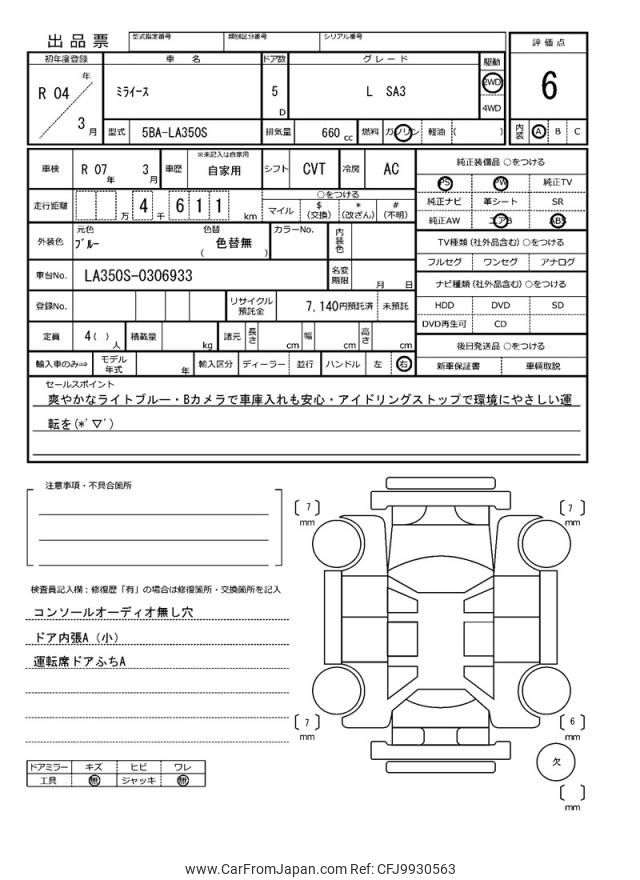 出品票
型式指定番号
類別区分番号
シリアル番号
評価点
6
内装 A B C
初年度登録
車 名
ドア数
グレード
駆動
R 04 年
3 月
ミライース
5 D
L SA3
2WD
4WD
型式 5BA-LA350S
排気量 660 cc
燃料 ガソリン 軽油 ( )
車検 R 07 年 3 月
車歴
※未記入は自家用
自家用
シフト CVT
冷房 AC
純正装備品 ○をつける
PS PW 純正TV
純正ナビ 革シート SR
純正AW エアB ABS
走行距離 万 4 千 6 1 1 km
○をつける
マイル $ (交換) * (改ざん) # (不明)
外装色
元色
ブルー
色替
( 色替無 )
カラーNo.
内装色
TV種類 (社外品含む) ○をつける
フルセグ ワンセグ アナログ
車台No. LA350S-0306933
名変期限 月 日
ナビ種類 (社外品含む) ○をつける
HDD DVD SD
DVD再生可 CD
登録No.
リサイクル預託金 7,140円預託済 未預託
定員 4( ) 人
積載量 kg
諸元 長さ cm 幅 cm 高さ cm
後日発送品 ○をつける
新車保証書 車輌取説
輸入車のみ⇒ モデル年式 年
輸入区分 ディーラー 並行
ハンドル 左 右
セールスポイント
爽やかなライトブルー・Bカメラで車庫入れも安心・アイドリングストップで環境にやさしい運
転を(*'▽')
注意事項・不具合箇所
検査員記入欄：修復歴「有」の場合は修復箇所・交換箇所を記入
コンソールオーディオ無し穴
ドア内張A（小）
運転席ドアふちA
7 mm
7 mm
7 mm
6 mm
欠
mm
ドアミラー キズ ヒビ ワレ
工具 無 ジャッキ 無
www.CarFromJapan.com Ref: CFJ9930563